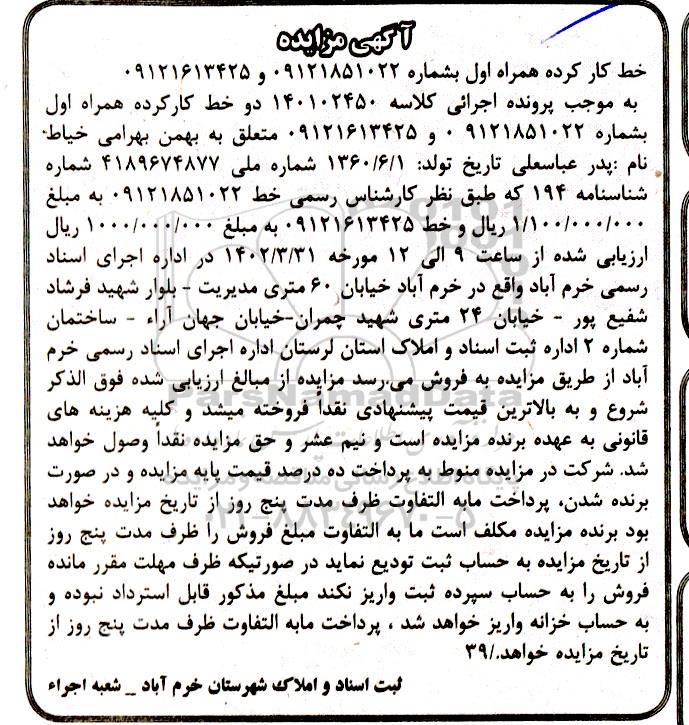 آگهی مزایده
خط کار کرده همراه اول بشماره ۰۹۱۲۱۸۵۱۰۲۲ و ۰۹۱۲۱۶۱۳۴۲۵
به موجب پرونده اجرائی کلاسه ۱۴۰۱۰۲۴۵۰ دو خط کارکرده همراه اول
بشماره ۹۱۲۱۸۵۱۰۲۲ ۰ و ۰۹۱۲۱۶۱۳۴۲۵ متعلق به بهمن بهرامی خیاط
نام :پدر عباسعلی تاریخ تولد: ۱۳۶۰/۶/۱ شماره ملی ۴۱۸۹۶۷۴۸۷۷ شماره
شناسنامه ۱۹۴ که طبق نظر کارشناس رسمی خط ۰۹۱۲۱۸۵۱۰۲۲ به مبلغ
۱/۱۰۰/۰۰۰/۰۰۰ ریال و خط ۰۹۱۲۱۶۱۳۴۲۵ به مبلغ ۱۰۰۰/۰۰۰/۰۰۰ ریال
ارزیابی شده از ساعت ۹ الی ۱۲ مورخه ۱۴۰۲/۳/۳۱ در اداره اجرای اسناد
رسمی خرم آباد واقع در خرم آباد خیابان ۶۰ متری مدیریت - بلوار شهید فرشاد
شفیع پور - خیابان ۲۴ متری شهید چمران-خیابان جهان آراء - ساختمان
شماره ۲ اداره ثبت اسناد و املاک استان لرستان اداره اجرای اسناد رسمی خرم
آباد از طریق مزایده به فروش می.رسد مزایده از مبالغ ارزیابی شده فوق الذکر
شروع و به بالاترین قیمت پیشنهادی نقداً فروخته میشد و کلیه هزینه های
قانونی به عهده برنده مزایده است و نیم عشر و حق مزایده نقداً وصول خواهد
شد. شرکت در مزایده منوط به پرداخت ده درصد قیمت پایه مزایده و در صورت
برنده شدن، پرداخت مابه التفاوت ظرف مدت پنج روز از تاریخ مزایده خواهد
بود برنده مزایده مکلف است ما به التفاوت مبلغ فروش را ظرف مدت پنج روز
از تاریخ مزایده به حساب ثبت تودیع نماید در صورتیکه ظرف مهلت مقرر مانده
فروش را به حساب سپرده ثبت واریز نکند مبلغ مذکور قابل استرداد نبوده و
به حساب خزانه واریز خواهد شد ، پرداخت مابه التفاوت ظرف مدت پنج روز از
تاریخ مزایده خواهد./۳۹
ثبت اسناد و املاک شهرستان خرم آباد _ شعبه اجراء
ParsNamadData
۰۲۱-۸۸۳۴۹۶۷۰-۵